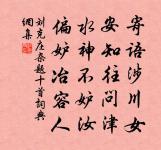 寄語涉川女
安知往問津
水神不妒汝
偏妒冶容人
刘克庄杂题十首詞典
網集